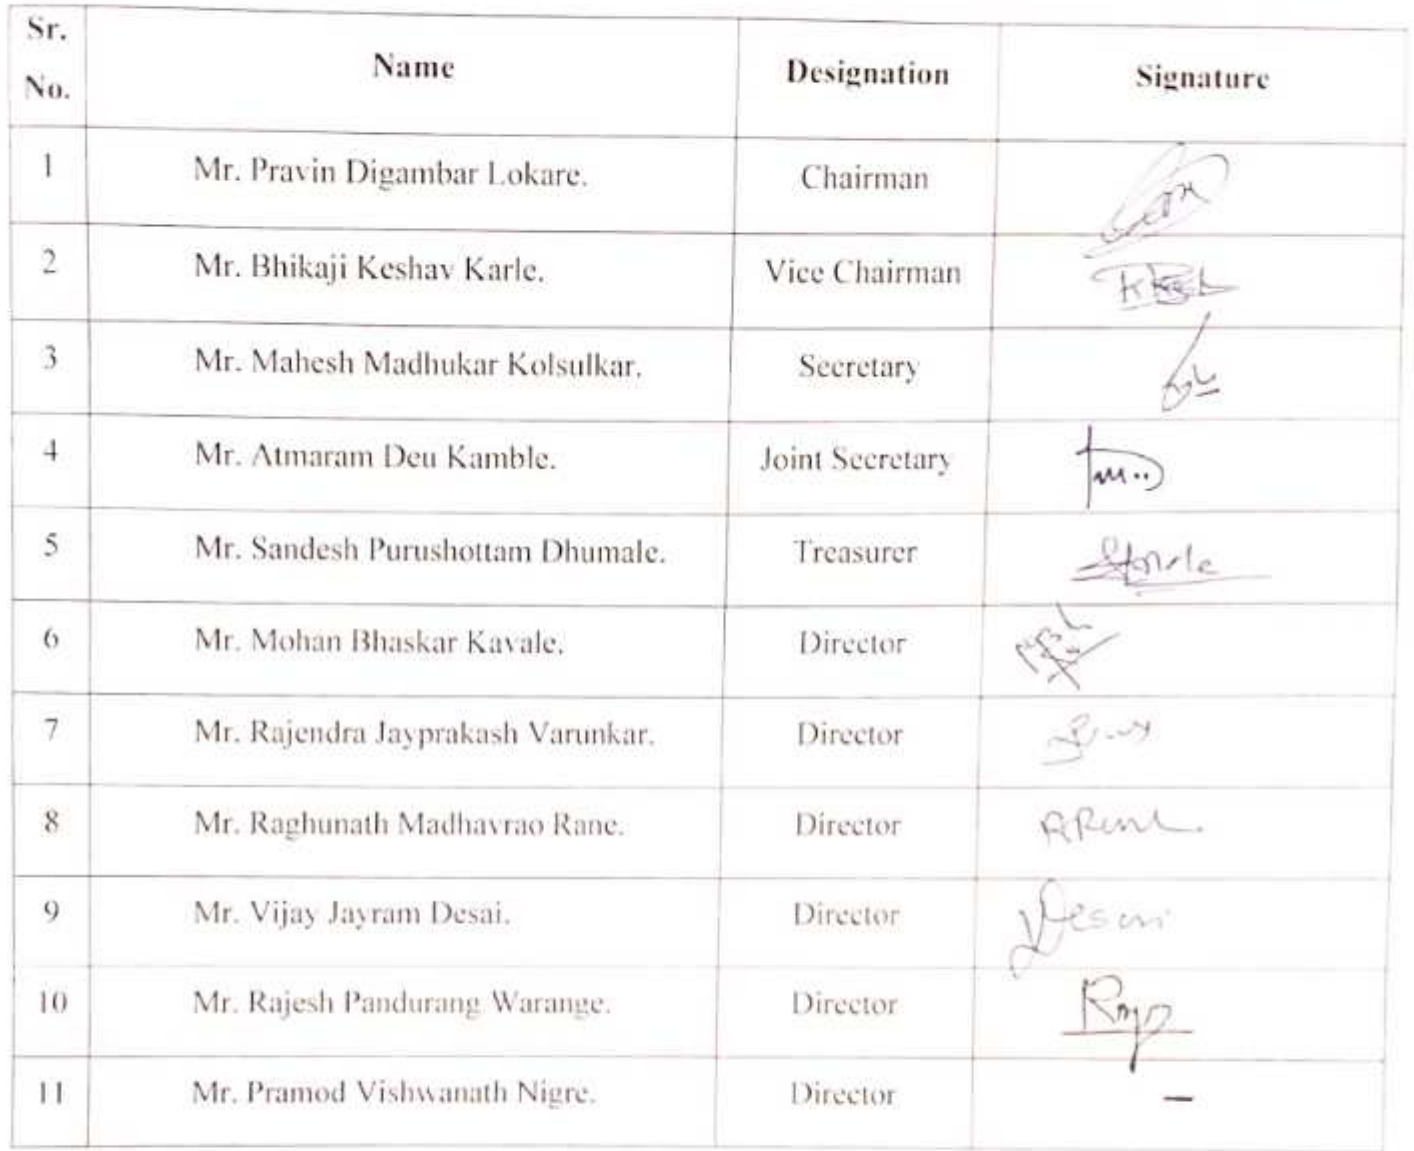 Sr. No. Name Designation Signature
1 Mr. Pravin Digambar Lokare. Chairman
2 Mr. Bhikaji Keshav Karle. Vice Chairman
3 Mr. Mahesh Madhukar Kolsulkar. Secretary
4 Mr. Atmaram Deu Kamble. Joint Secretary
5 Mr. Sandesh Purushottam Dhumale. Treasurer
6 Mr. Mohan Bhaskar Kavale. Director
7 Mr. Rajendra Jayprakash Varunkar. Director
8 Mr. Raghunath Madhavrao Rane. Director
9 Mr. Vijay Jayram Desai. Director Desai
10 Mr. Rajesh Pandurang Warange. Director
11 Mr. Pramod Vishwanath Nigre. Director –